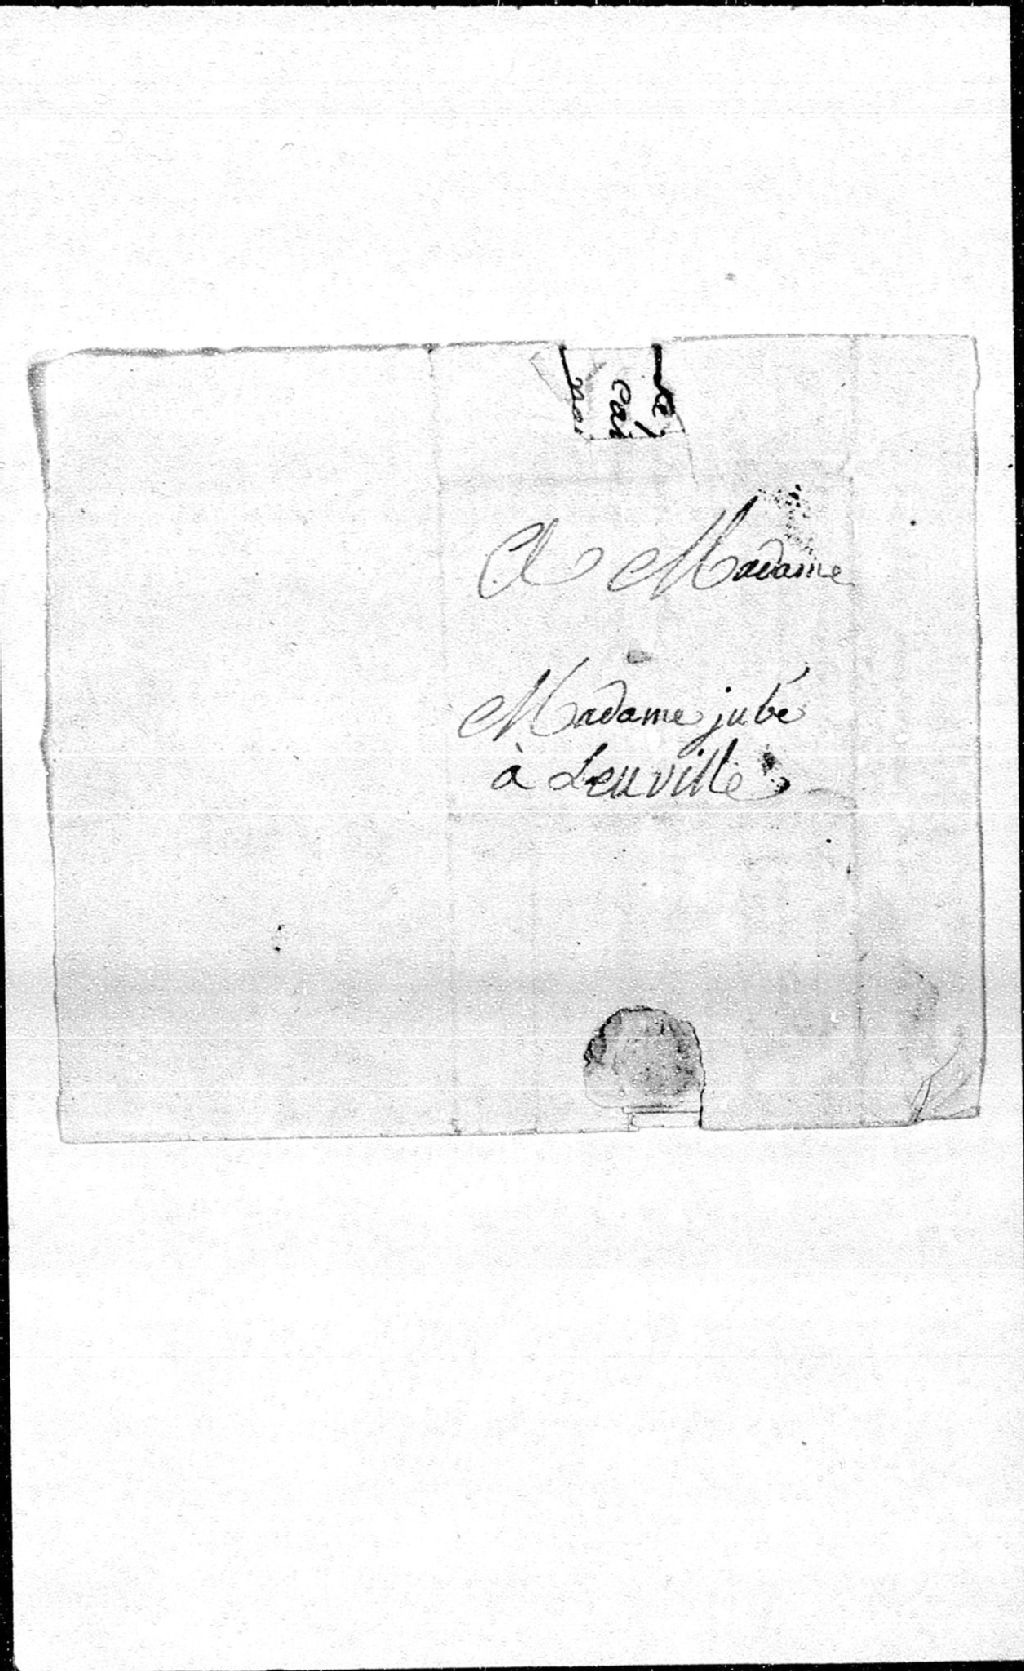 A Madame
Madame jubé
à Leuville